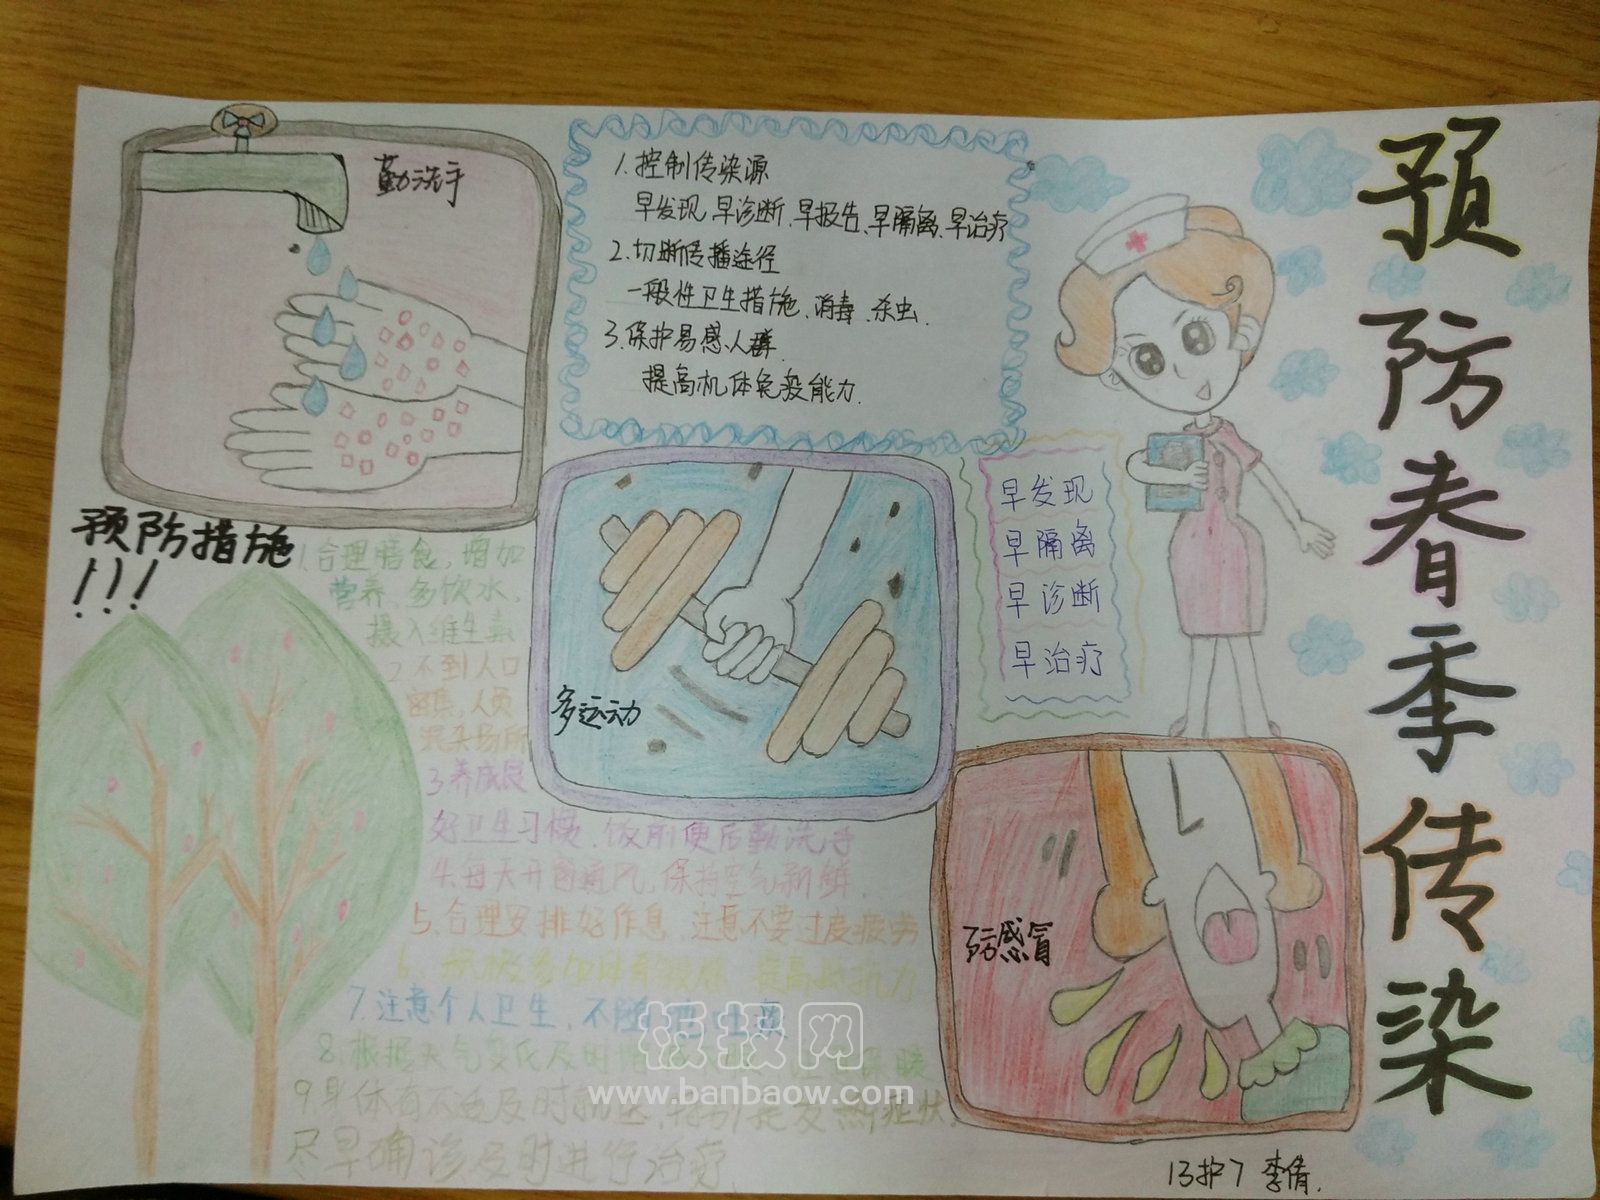 预防春季传染
勤洗手
1.控制传染源
早发现、早诊断、早报告、早隔离、早治疗
2.切断传播途径
一般性卫生措施、消毒、杀虫.
3.保护易感人群.
提高机体免疫能力.
早发现
早隔离
早诊断
早治疗
多运动
防感冒
预防措施
!!!
1.合理膳食,增加
营养、多饮水,
摄入维生素
2.不到人口
密集,人员
混杂场所
3.养成良
好卫生习惯、饭前便后勤洗手
4.每天开窗通风,保持空气新鲜.
5.合理安排好作息 注意不要过度疲劳
6. 积极参加体育锻炼 提高抵抗力
7.注意个人卫生,不随
8.根据天气变化及时增
9.身体有不适及时就医,特别是发热症状.
尽早确诊及时进行治疗.
13护7 李倩.
板报网
www.banbaow.com